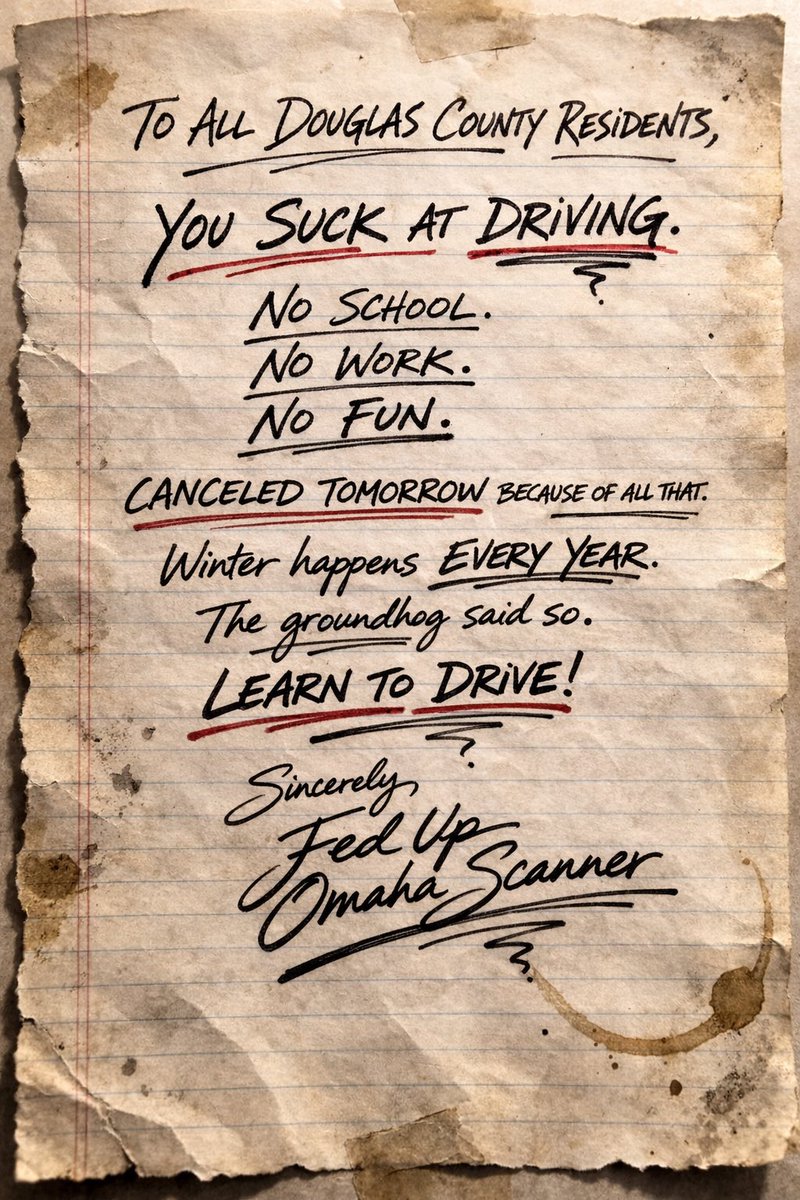 To All Douglas County Residents,
You Suck at Driving.
No School.
No Work.
No Fun.
Canceled Tomorrow because of all that.
Winter happens EVERY YEAR.
The groundhog said so.
LEARN TO DRIVE!
Sincerely,
Fed Up
Omaha Scanner